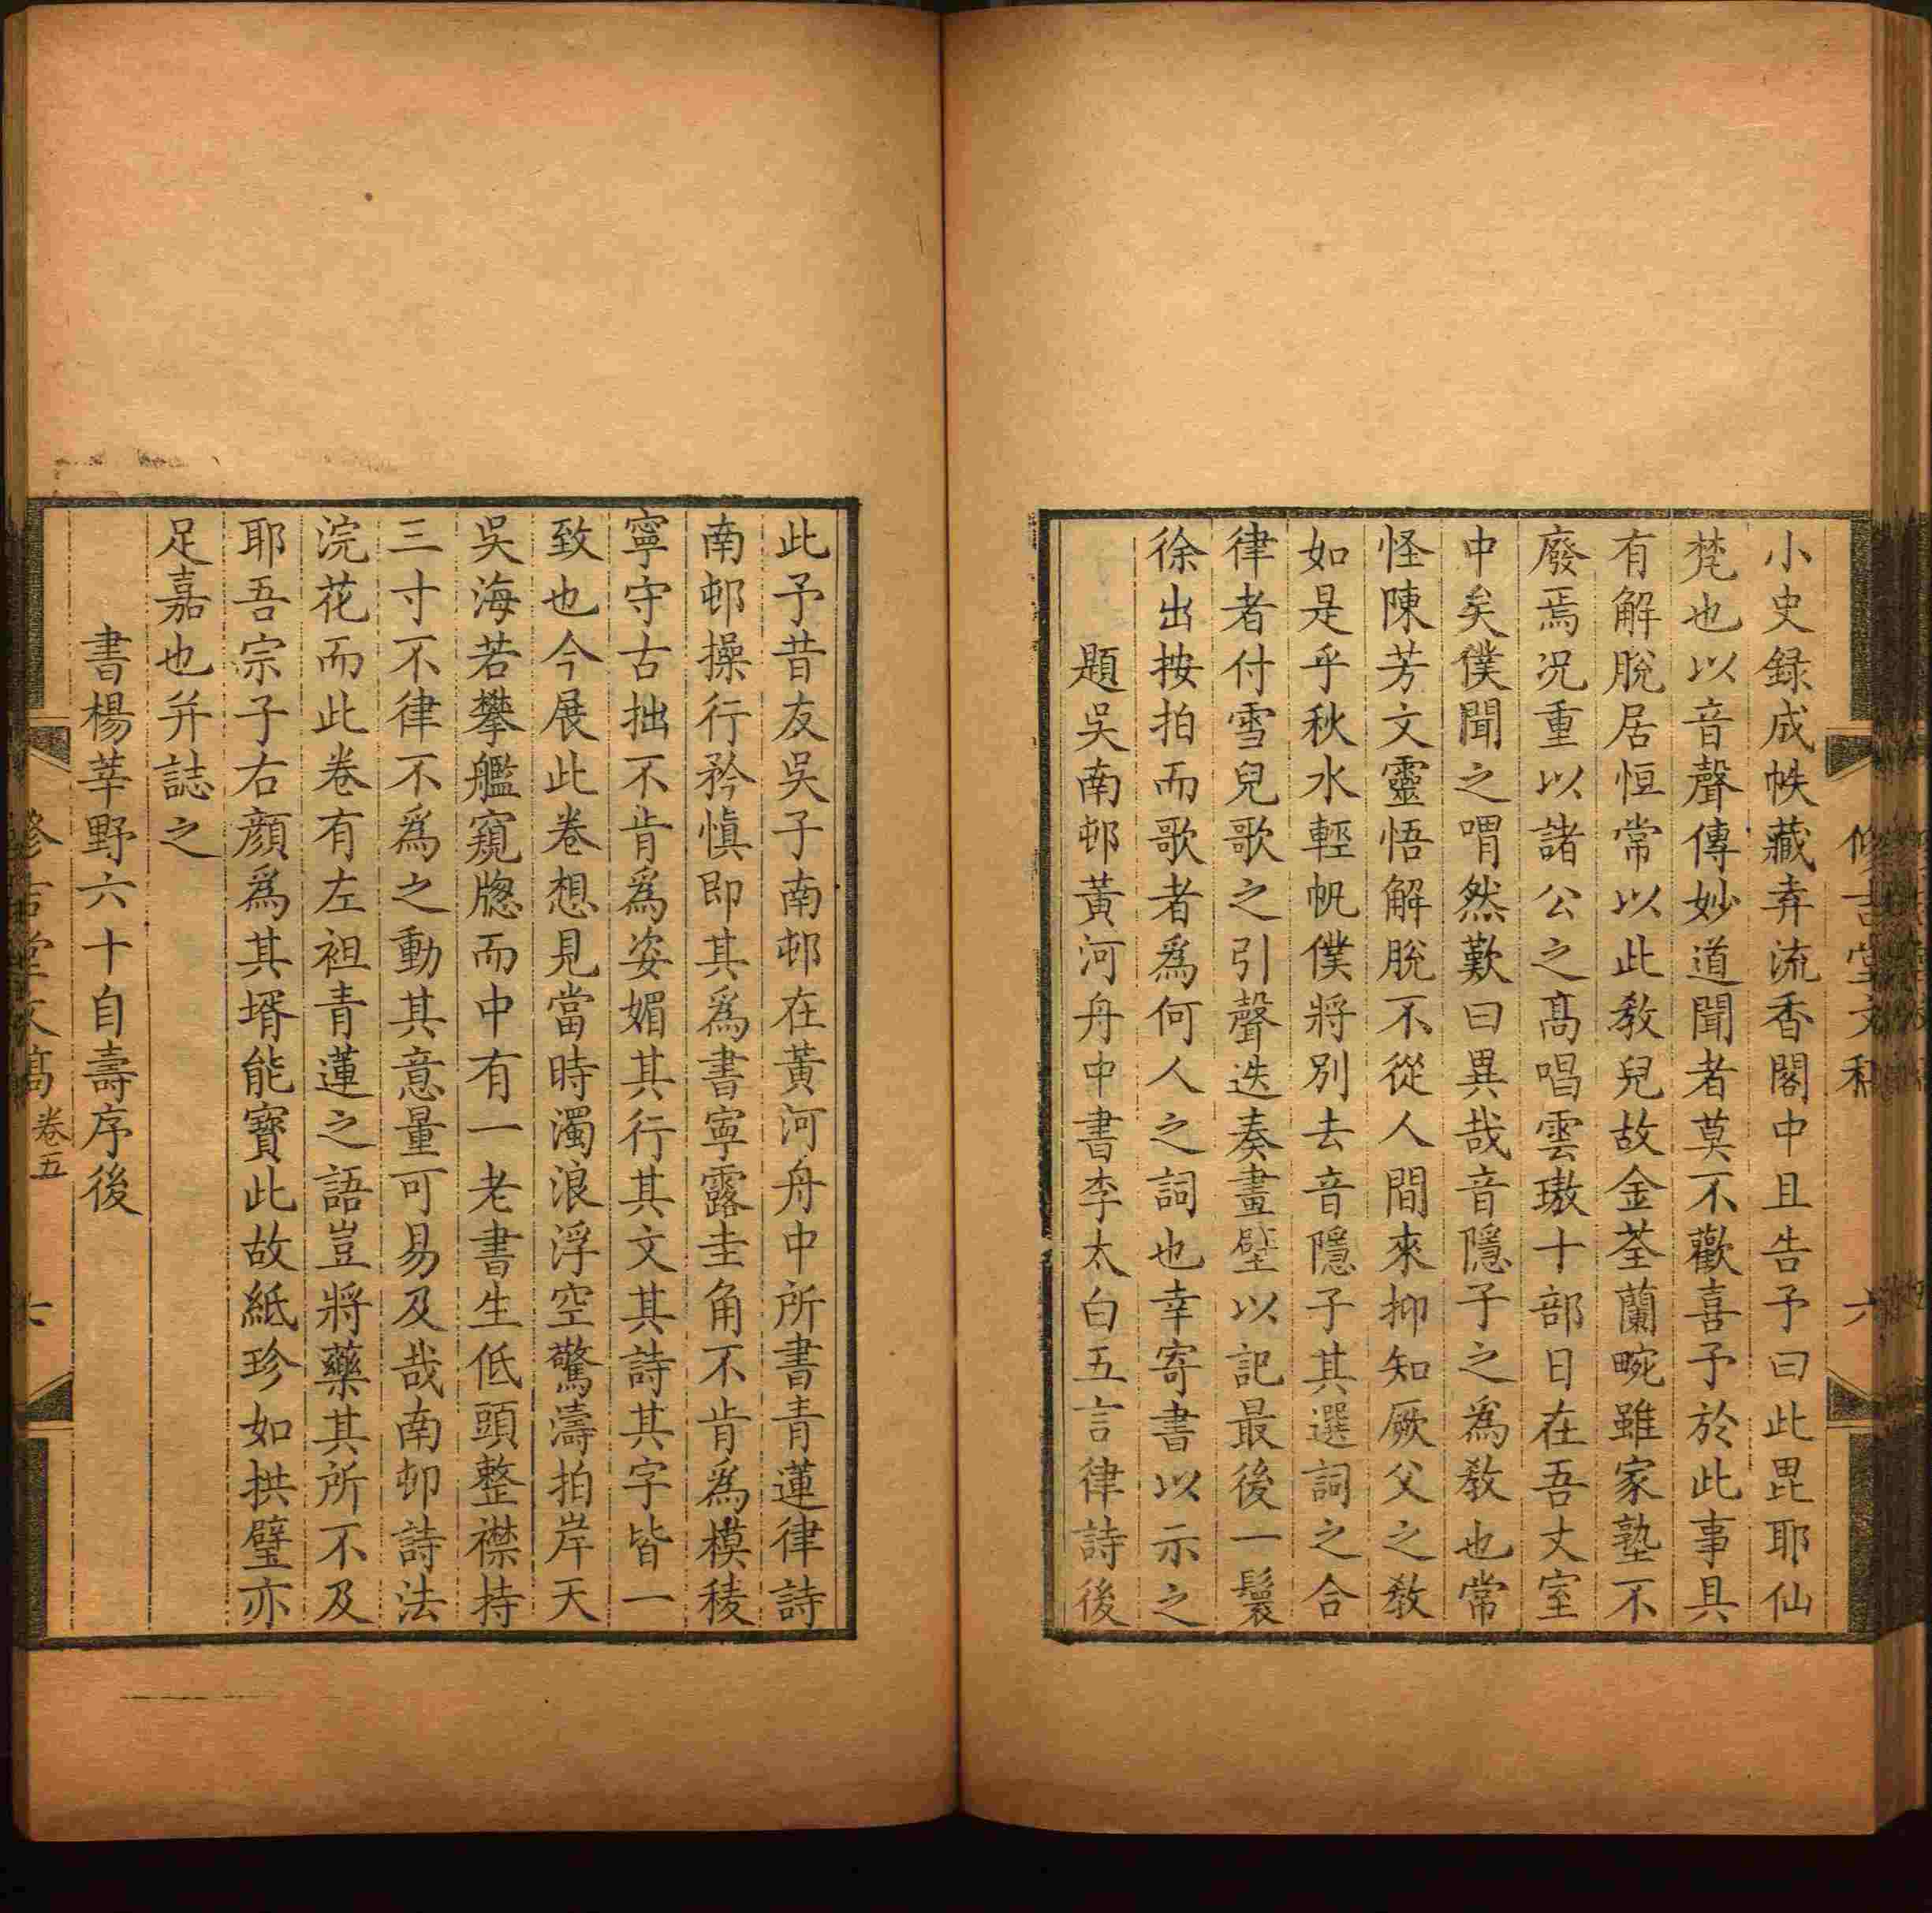 小史録成帙藏弆流香閣中且告予曰此毘耶仙
梵也以音聲傳妙道聞者莫不歡喜予於此事具
有解脫居恒常以此教兒故金荃蘭畹雖家塾不
廢焉況重以諸公之髙唱雲璈十部日在吾丈室
中矣僕聞之喟然歎曰異哉音隱子之爲教也常
怪陳芳文靈悟解脫不從人間來抑知厥父之教
如是乎秋水輕帆僕將別去音隱子其選詞之合
律者付雪兒歌之引聲迭奏畫壁以記最後一鬟
徐出按拍而歌者爲何人之詞也幸寄書以示之
題吳南邨黃河舟中書李太白五言律詩後
此予昔友吳子南邨在黃河舟中所書青蓮律詩
南邨操行矜慎即其爲書寧露圭角不肯爲模稜
寧守古拙不肯爲姿媚其行其文其詩其字皆一
致也今展此卷想見當時濁浪浮空驚濤拍岸天
吳海若攀艦窺牕而中有一老書生低頭整襟持
三寸不律不爲之動其意量可易及哉南邨詩法
浣花而此卷有左袒青蓮之語豈將藥其所不及
耶吾宗子右顏爲其壻能寶此故紙珍如拱璧亦
足嘉也并誌之
書楊莘野六十自壽序後
堂文稾 卷五